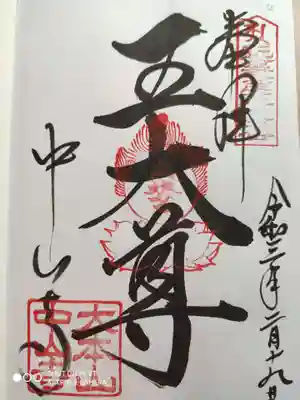 奉拝
令和三年二月十九日
五大尊
中山寺
大本山
中山寺